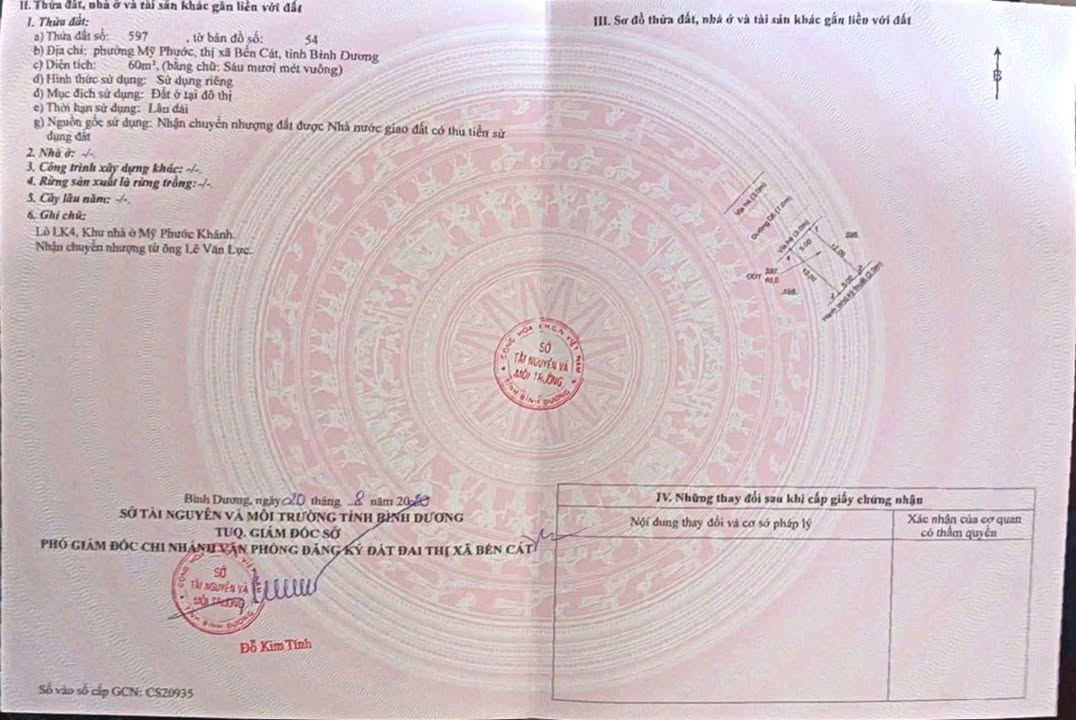 II. Thửa đất, nhà ở và tài sản khác gắn liền với đất
1. Thửa đất:
a) Thửa đất số: 597 , tờ bản đồ số: 54
b) Địa chỉ: phường Mỹ Phước, thị xã Bến Cát, tỉnh Bình Dương
c) Diện tích: 60m², (bằng chữ: Sáu mươi mét vuông)
d) Hình thức sử dụng: Sử dụng riêng
đ) Mục đích sử dụng: Đất ở tại đô thị
e) Thời hạn sử dụng: Lâu dài
g) Nguồn gốc sử dụng: Nhận chuyển nhượng đất được Nhà nước giao đất có thu tiền sử
dụng đất
2. Nhà ở: -/-.
3. Công trình xây dựng khác: -/-.
4. Rừng sản xuất là rừng trồng: -/-.
5. Cây lâu năm: -/-.
6. Ghi chú:
Lô LK4, Khu nhà ở Mỹ Phước Khánh.
Nhận chuyển nhượng từ ông Lê Văn Lực.
Bình Dương, ngày 20 tháng 8 năm 2020
SỞ TÀI NGUYÊN VÀ MÔI TRƯỜNG TỈNH BÌNH DƯƠNG
TUQ. GIÁM ĐỐC SỞ
PHÓ GIÁM ĐỐC CHI NHÁNH VĂN PHÒNG ĐĂNG KÝ ĐẤT ĐAI THỊ XÃ BẾN CÁT
SỞ
TÀI NGUYÊN VÀ
MÔI TRƯỜNG
TỈNH BÌNH DƯƠNG
Đỗ Kim Tính
Số vào sổ cấp GCN: CS20935
CỘNG HÒA X.H.C.N VIỆT NAM
SỞ
TÀI NGUYÊN VÀ
MÔI TRƯỜNG
TỈNH BÌNH DƯƠNG
III. Sơ đồ thửa đất, nhà ở và tài sản khác gắn liền với đất
B
Vỉa hè (3.0m)
Đường D6 (7.0m)
Vỉa hè (3.0m)
5.00
12.00
12.00
5.00
ODT 597 60,0
596
598
Hành lang kỹ thuật (2.0m)
IV. Những thay đổi sau khi cấp giấy chứng nhận
Nội dung thay đổi và cơ sở pháp lý
Xác nhận của cơ quan
có thẩm quyền